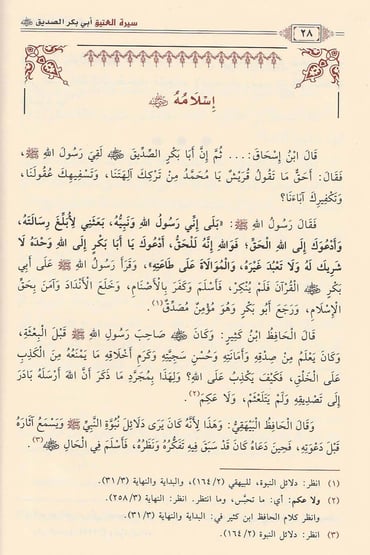 سيرة العتيق أبي بكر الصديق ﷺ
٢٨
إِسْلَامُهُ
قَالَ ابْنُ إِسْحَاقَ: ... ثُمَّ إِنَّ أَبَا بَكْرٍ الصِّدِّيقَ لَقِيَ رَسُولَ اللهِ ﷺ
فَقَالَ: أَحَقٌّ مَا تَقُولُ قُرَيْشٌ يَا مُحَمَّدُ مِنْ تَرْكِكَ آلِهَتَنَا، وَتَسْفِيهِكَ عُقُولَنَا،
وَتَكْفِيرِكَ آبَاءَنَا؟
فَقَالَ رَسُولُ اللهِ ﷺ: «بَلَى إِنِّي رَسُولُ اللهِ وَنَبِيُّهُ، بَعَثَنِي لِأُبَلِّغَ رِسَالَتَهُ،
وَأَدْعُوَكَ إِلَى اللهِ الْحَقِّ؛ فَوَاللهِ إِنَّهُ لَلْحَقُّ، أَدْعُوكَ يَا أَبَا بَكْرٍ إِلَى اللهِ وَحْدَهُ لَا
شَرِيكَ لَهُ وَلَا تَعْبُدَ غَيْرَهُ، وَالْمُوَالَاةِ عَلَى طَاعَتِهِ»، وَقَرَأَ رَسُولُ اللهِ ﷺ عَلَى أَبِي
بَكْرٍ الْقُرْآنَ فَلَمْ يُنْكِرْ، فَأَسْلَمَ وَكَفَرَ بِالْأَصْنَامِ، وَخَلَعَ الْأَنْدَادَ وَآمَنَ بِحَقِّ
الْإِسْلَامِ، وَرَجَعَ أَبُو بَكْرٍ وَهُوَ مُؤْمِنٌ مُصَدِّقٌ(١).
قَالَ الْحَافِظُ ابْنُ كَثِيرٍ: وَكَانَ صَاحِبَ رَسُولِ اللهِ ﷺ قَبْلَ الْبِعْثَةِ،
وَكَانَ يَعْلَمُ مِنْ صِدْقِهِ وَأَمَانَتِهِ وَحُسْنِ سَجِيَّتِهِ وَكَرَمِ أَخْلَاقِهِ مَا يَمْنَعُهُ مِنَ الْكَذِبِ
عَلَى الْخَلْقِ، فَكَيْفَ يَكْذِبُ عَلَى اللهِ؟ وَلِهَذَا بِمُجَرَّدِ مَا ذَكَرَ أَنَّ اللهَ أَرْسَلَهُ بَادَرَ
إِلَى تَصْدِيقِهِ وَلَمْ يَتَلَعْثَمْ، وَلَا عَكِمَ(٢).
وَقَالَ الْحَافِظُ الْبَيْهَقِيُّ: وَهَذَا لِأَنَّهُ كَانَ يَرَى دَلَائِلَ نُبُوَّةِ النَّبِيِّ ﷺ وَيَسْمَعُ آثَارَهُ
قَبْلَ دَعْوَتِهِ، فَحِينَ دَعَاهُ كَانَ قَدْ سَبَقَ فِيهِ تَفَكُّرُهُ وَنَظَرُهُ، فَأَسْلَمَ فِي الْحَالِ (٣).
(١) انظر: دلائل النبوة، للبيهقي (١٦٤/٢)، والبداية والنهاية (٣١/٣).
(٢) ولا عكم: أي: ما تحبَّس، وما انتظر. انظر: النهاية (٢٥٨/٣)
وانظر كلام الحافظ ابن كثير في: البداية والنهاية (٣١/٣).
(٣) انظر: دلائل النبوة (١٦٤/٢).